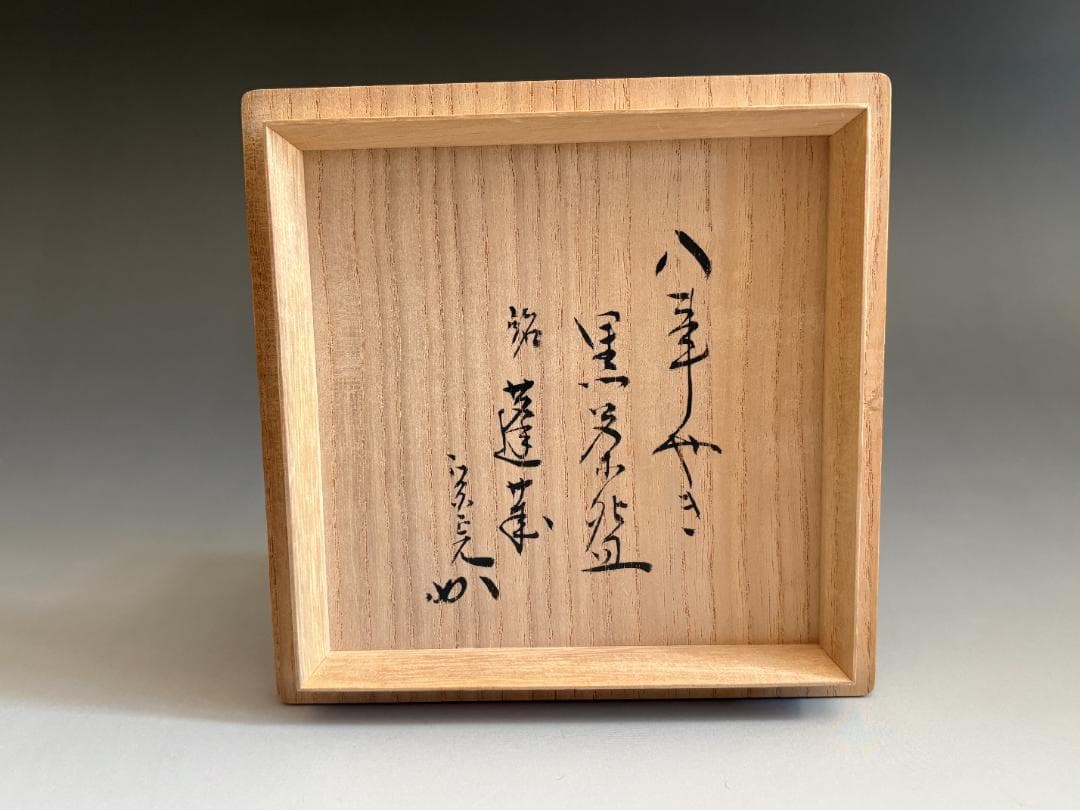 八事やき
黒茶盌
銘 蓬莱